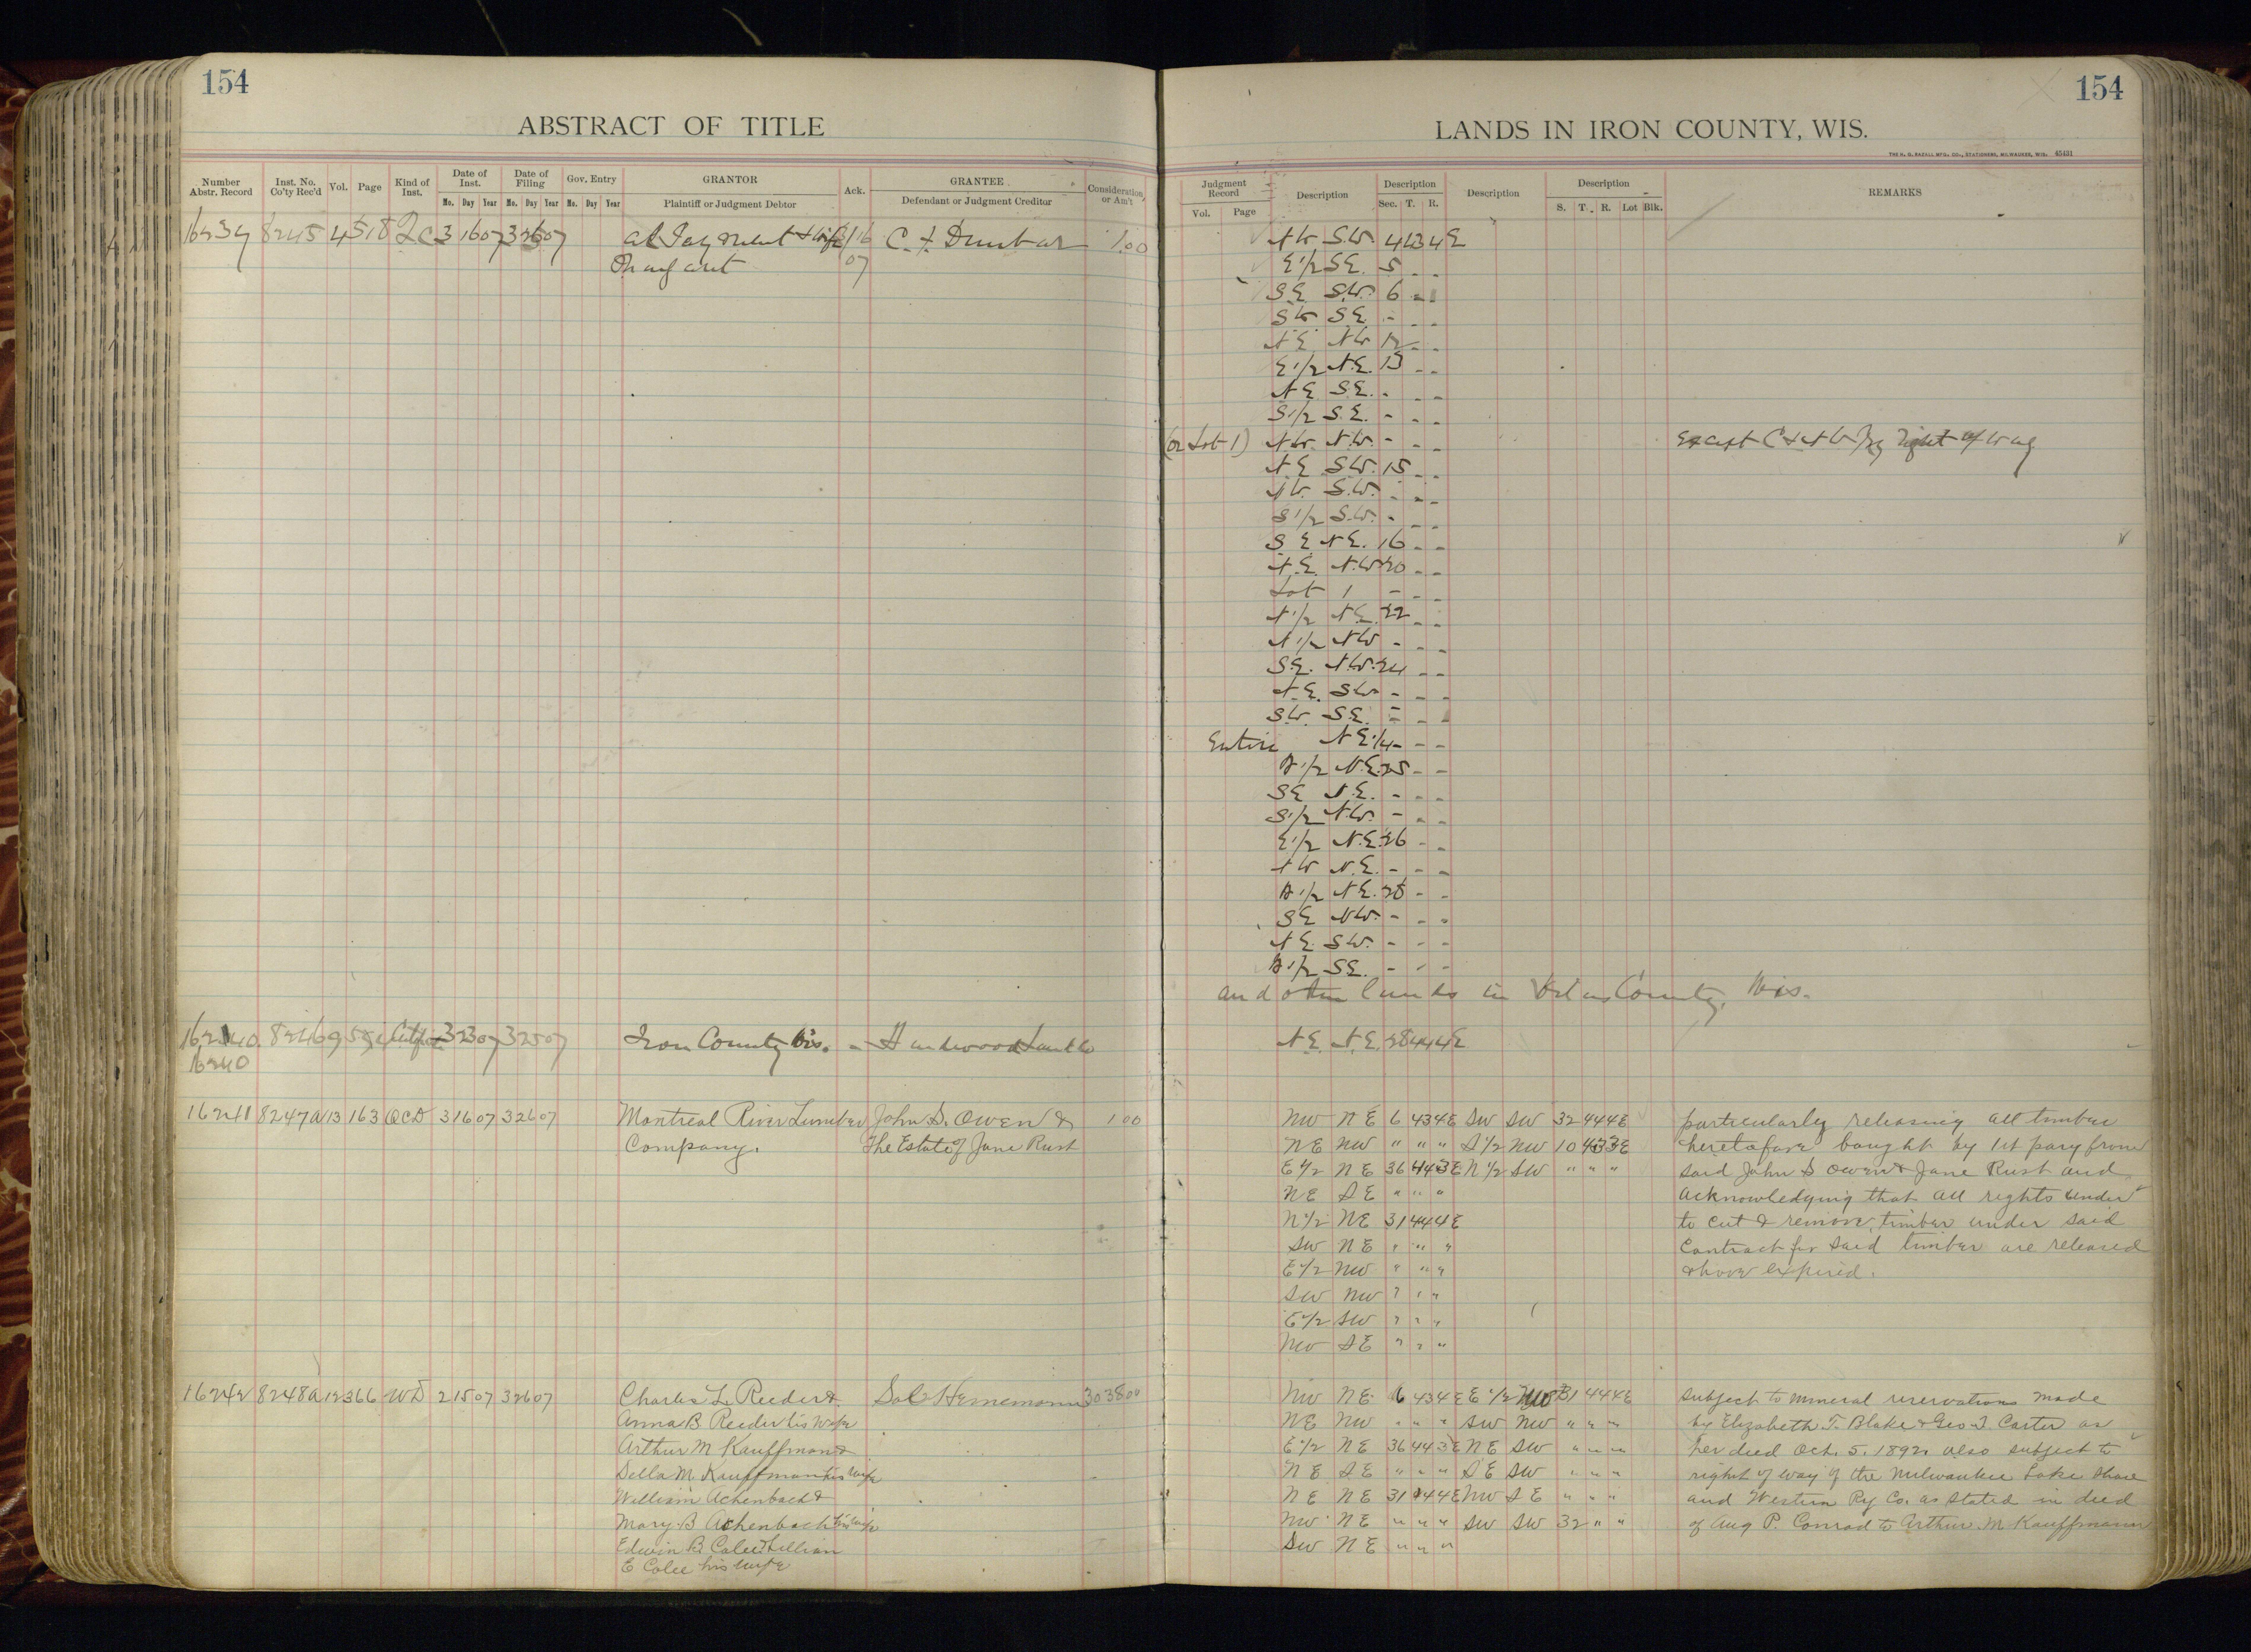 154
ABSTRACT OF TITLE
Number Abstr. Record Inst. No. Co'ty Rec'd Vol. Page Kind of Inst. Date of Inst. Mo. Day Year Date of Filing Mo. Day Year Gov. Entry Mo. Day Year GRANTOR Plaintiff or Judgment Debtor Ack. GRANTEE Defendant or Judgment Creditor Consideration, or Am't
16239 8245 4 518 QC 3 16 07 3 26 07 & Wife 3/16 C. F. Dunbar 1.00
Margaret 07
16240 8246 9 3 23 07 3 25 07 Iron County Wis.
16240
16241 8247 A13 163 QCD 3 16 07 3 26 07 Montreal River Lumber John S. Owen & 1 00
Company. The Estate of Jane Rust
16242 8248 A12 366 WD 2 15 07 3 26 07 Charles L. Reeder & Sol Heinemann 3038 00
Anna B Reeder his wife
Arthur M Kauffman &
Della M. Kauffman his wife
William Achenbach &
Mary B Achenbach his wife
Edwin B. Calee Lillian
E Calee his wife
154
LANDS IN IRON COUNTY, WIS.
THE H. G. RAZALL MFG. CO., STATIONERS, MILWAUKEE, WIS. 45431
Judgment Record Vol. Page Description Description Sec. T. R. Description Description S. T. R. Lot Blk. REMARKS
NW SW. 4 43 4E
E1/2 SE. 5 - -
SE SW. 6 - -
SW SE - - -
NE NW 12 - -
E1/2 NE. 13 - -
NE SE. - - -
S1/2 SE. - - -
(or Lot 1) NW. NW. - - - Except C & NW Ry right of way
NE SW. 15 - -
NW. SW. - - -
S1/2 SW. - - -
SE NE. 16 - -
NE. NW 20 - -
Lot 1 - - -
N1/2 NE. 22 - -
N1/2 NW - - -
SE. NW. 24 - -
NE. SW - - -
SW. SE. - - -
Entire NE1/4 - - -
N1/2 NE. 25 - -
SE NE. - - -
S1/2 NW. - - -
E1/2 NE. 26 - -
NW NE. - - -
N1/2 NE. 28 - -
SE NW. - - -
NE SW. - - -
N1/2 SE. - - -
and other lands in Vilas County, Wis.
NE. NE. 28 44 4E
NW NE 6 43 4E SW SW 32 44 4E particularly releasing all timber
NE NW " " " S1/2 NW 10 43 3E heretofore bought by 1st party from
E1/2 NE 36 44 3E N1/2 SW " " " said John S Owen & Jane Rust and
NE SE " " " acknowledging that all rights under
N1/2 NE 31 44 4E to cut & remove timber under said
SW NE " " " Contract for said timber are released
E1/2 NW " " " & have expired.
SW NW " " "
E1/2 SW " " "
NW SE " " "
NW NE 6 43 4E E1/2 NW 31 44 4E subject to mineral reservations made
NE NW " " " SW NW " " " by Elizabeth T. Blake & Geo. T. Carter as
E1/2 NE 36 44 3E NE SW " " " per deed Oct. 5. 1892. also subject to
NE SE " " " SE SW " " " right of way of the Milwaukee Lake Shore
NE NE 31 44 4E NW SE " " " and Western Ry Co. as stated in deed
NW NE " " " SW SW 32 " " of Aug P. Conrad to Arthur M Kauffmann
SW NE " " "